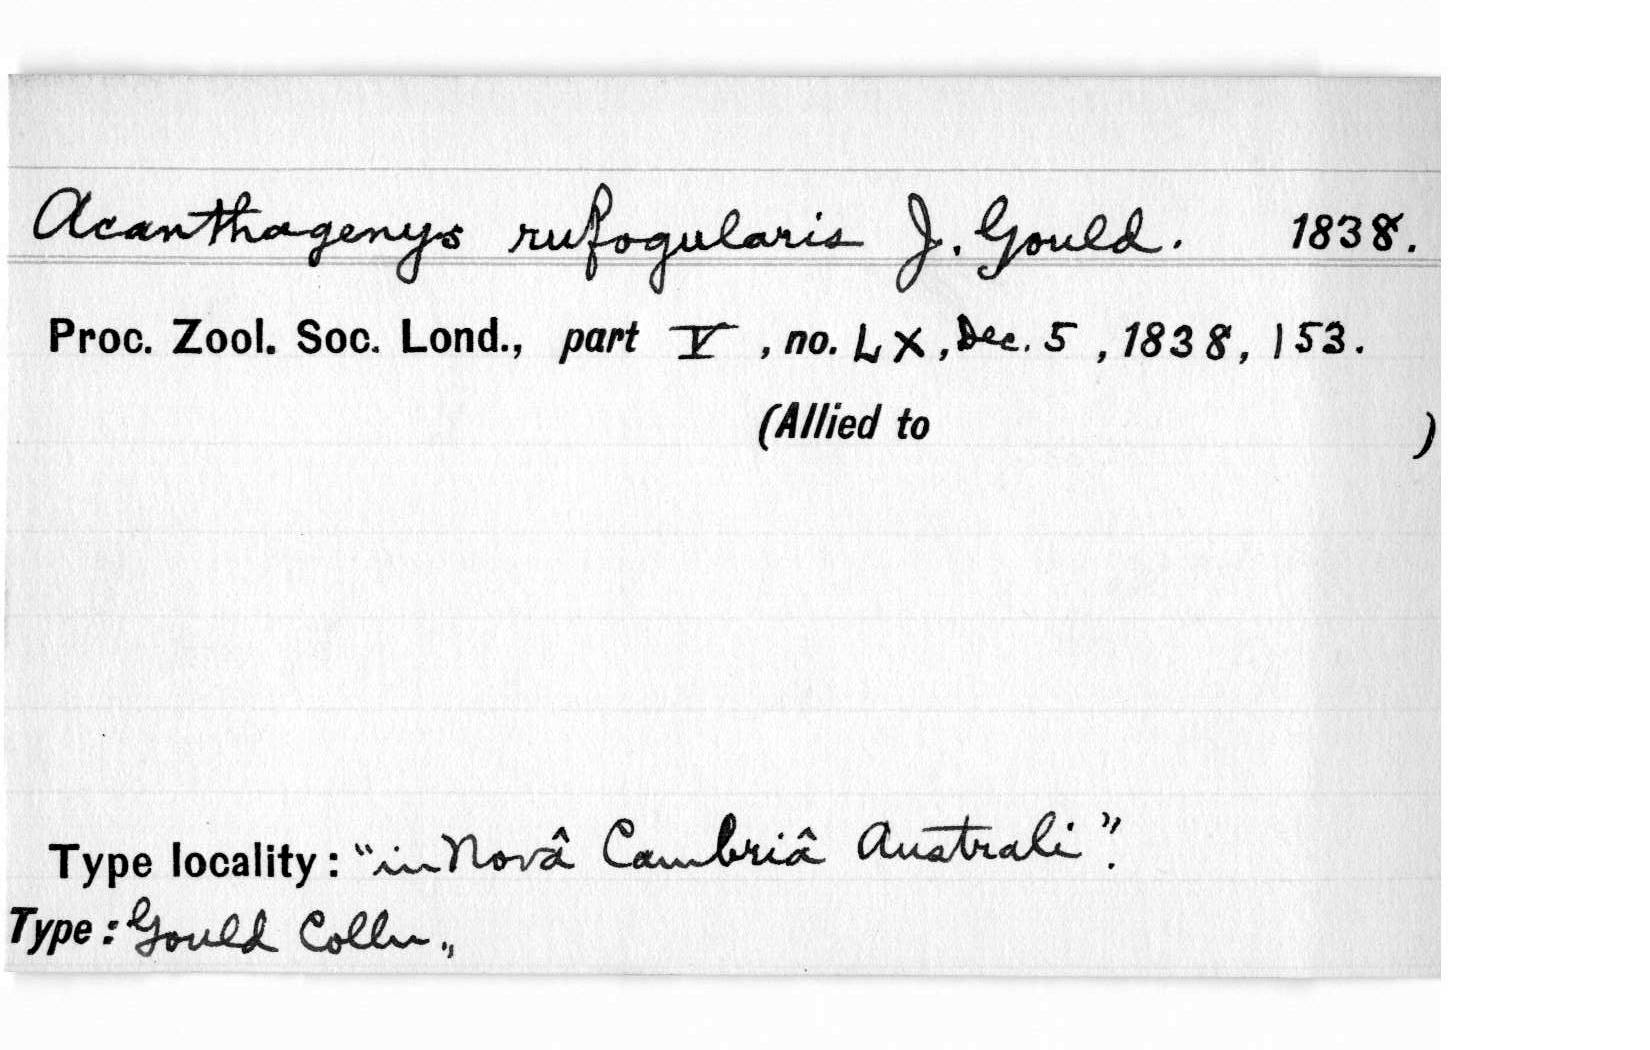 Acanthagenys rufogularis J. Gould. 1838.
Proc. Zool. Soc. Lond., part V, no. LX, Dec. 5, 1838, 153.
(Allied to )
Type locality: "in Novâ Cambriâ Australi".
Type: Gould Colln.,